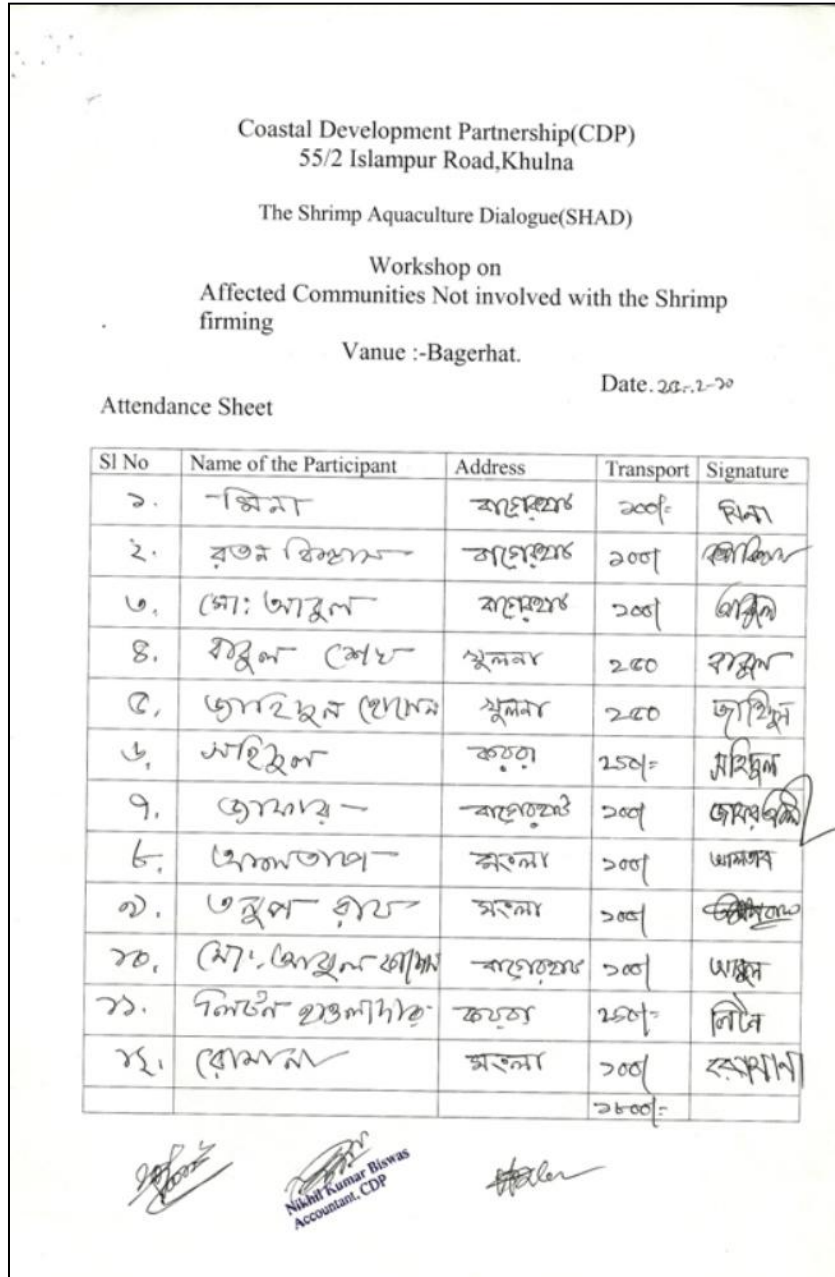 Coastal Development Partnership(CDP)
55/2 Islampur Road,Khulna
The Shrimp Aquaculture Dialogue(SHAD)
Workshop on
Affected Communities Not involved with the Shrimp
firming
Vanue :-Bagerhat.
Date. ২৫-২-১০
Attendance Sheet
Sl No Name of the Participant Address Transport Signature
১. মিনা বাগেরহাট ১০০/= মিনা
২. রতন বিশ্বাস বাগেরহাট ১০০/
৩. মো: আবুল বাগেরহাট ১০০/ আবুল
৪. বাবুল শেখ খুলনা ২৫০ বাবুল
৫. জাহিদুল হোসেন খুলনা ২৫০ জাহিদুল
৬. সহিদুল কয়রা ২৫০/= সহিদুল
৭. জাফার বাগেরহাট ১০০/
৮. আলতাপ মংলা ১০০/ আলতাব
৯. অনুপ রায় মংলা ১০০/
১০. মো: আবুল বাগেরহাট ১০০/ আবুল
১১. লিটন হাওলাদার কয়রা ২৫০/= লিটন
১২. রোমানা মংলা ১০০/
১৮০০/=
Nikhil Kumar Biswas
Accountant, CDP